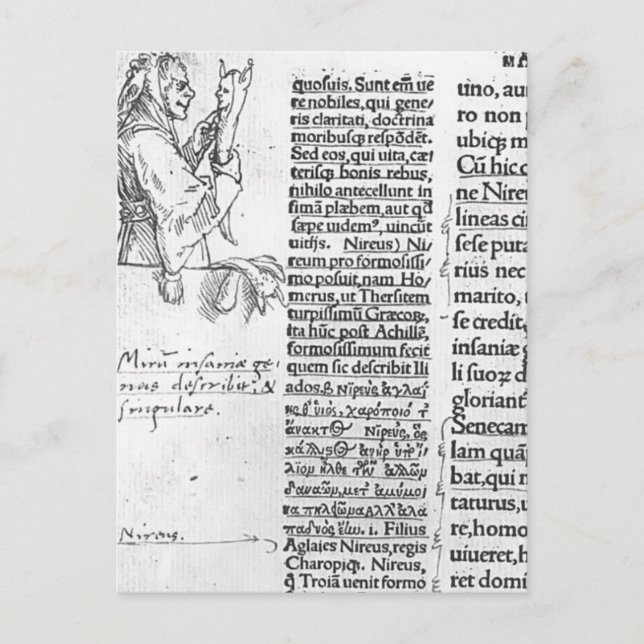 quosuis. Sunt em̃ ue
re nobiles, qui gene
ris claritati, doctrina
moribusq; respõdẽt.
Sed eos, qui uita, cæ
terisq; bonis rebus,
nihilo antecellunt in
simã plæbem, aut qđ
sæpe uidem⁹, uincũt
uitijs. Nireus) Ni
reum pro formosissi
mo posuit, nam Ho
merus, ut Thersitem
turpissimũ Græcoꝝ,
ita hũc post Achillẽ,
formosissimum fecit
quem sic describit Ili
ados. β Νιρεὺς ἀγλαΐ
ης θ' υἱὸς, χαρόποιό τ'
ἄνακτος Νιρεὺς, ὃς
κάλλιστος ἀνὴρ ὑπὸ
ἴλιον ἦλθε τῶν ἄλλων
δαναῶν, μετ' ἀμύμονα
πηλείωνα Ἀλλ'
i. Filius
Aglaies Nireus, regis
Charopiq;. Nireus,
q̃ Troiã uenit formo
Mirũ insaniæ ge-
nus describit, &
singulare.
Nireus.
MA
uino, au
ro non
ubiq; m
Cũ hic c
ne Nireu
lineas ci
sese puta
rius nec
marito, t
se credit,
insaniæ g
li suoꝝ d
gloriant
Senecam
lam quã
bat, qui n
taturus, u
re, homo
uiueret, h
ret domi